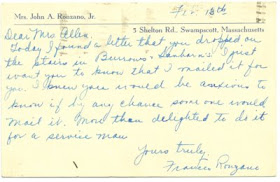 Mrs. John A. Ronzano, Jr.
Fri. 18th
3 Shelton Rd., Swampscott, Massachusetts
Dear Mrs. Allen
Today I found a letter that you dropped on
the stairs in Burrows & Sanborn's. I just
want you to know that I mailed it for
you. I knew you would be anxious to
know if by any chance someone would
mail it. More than delighted to do it
for a service man
Yours truly,
Frances Ronzano